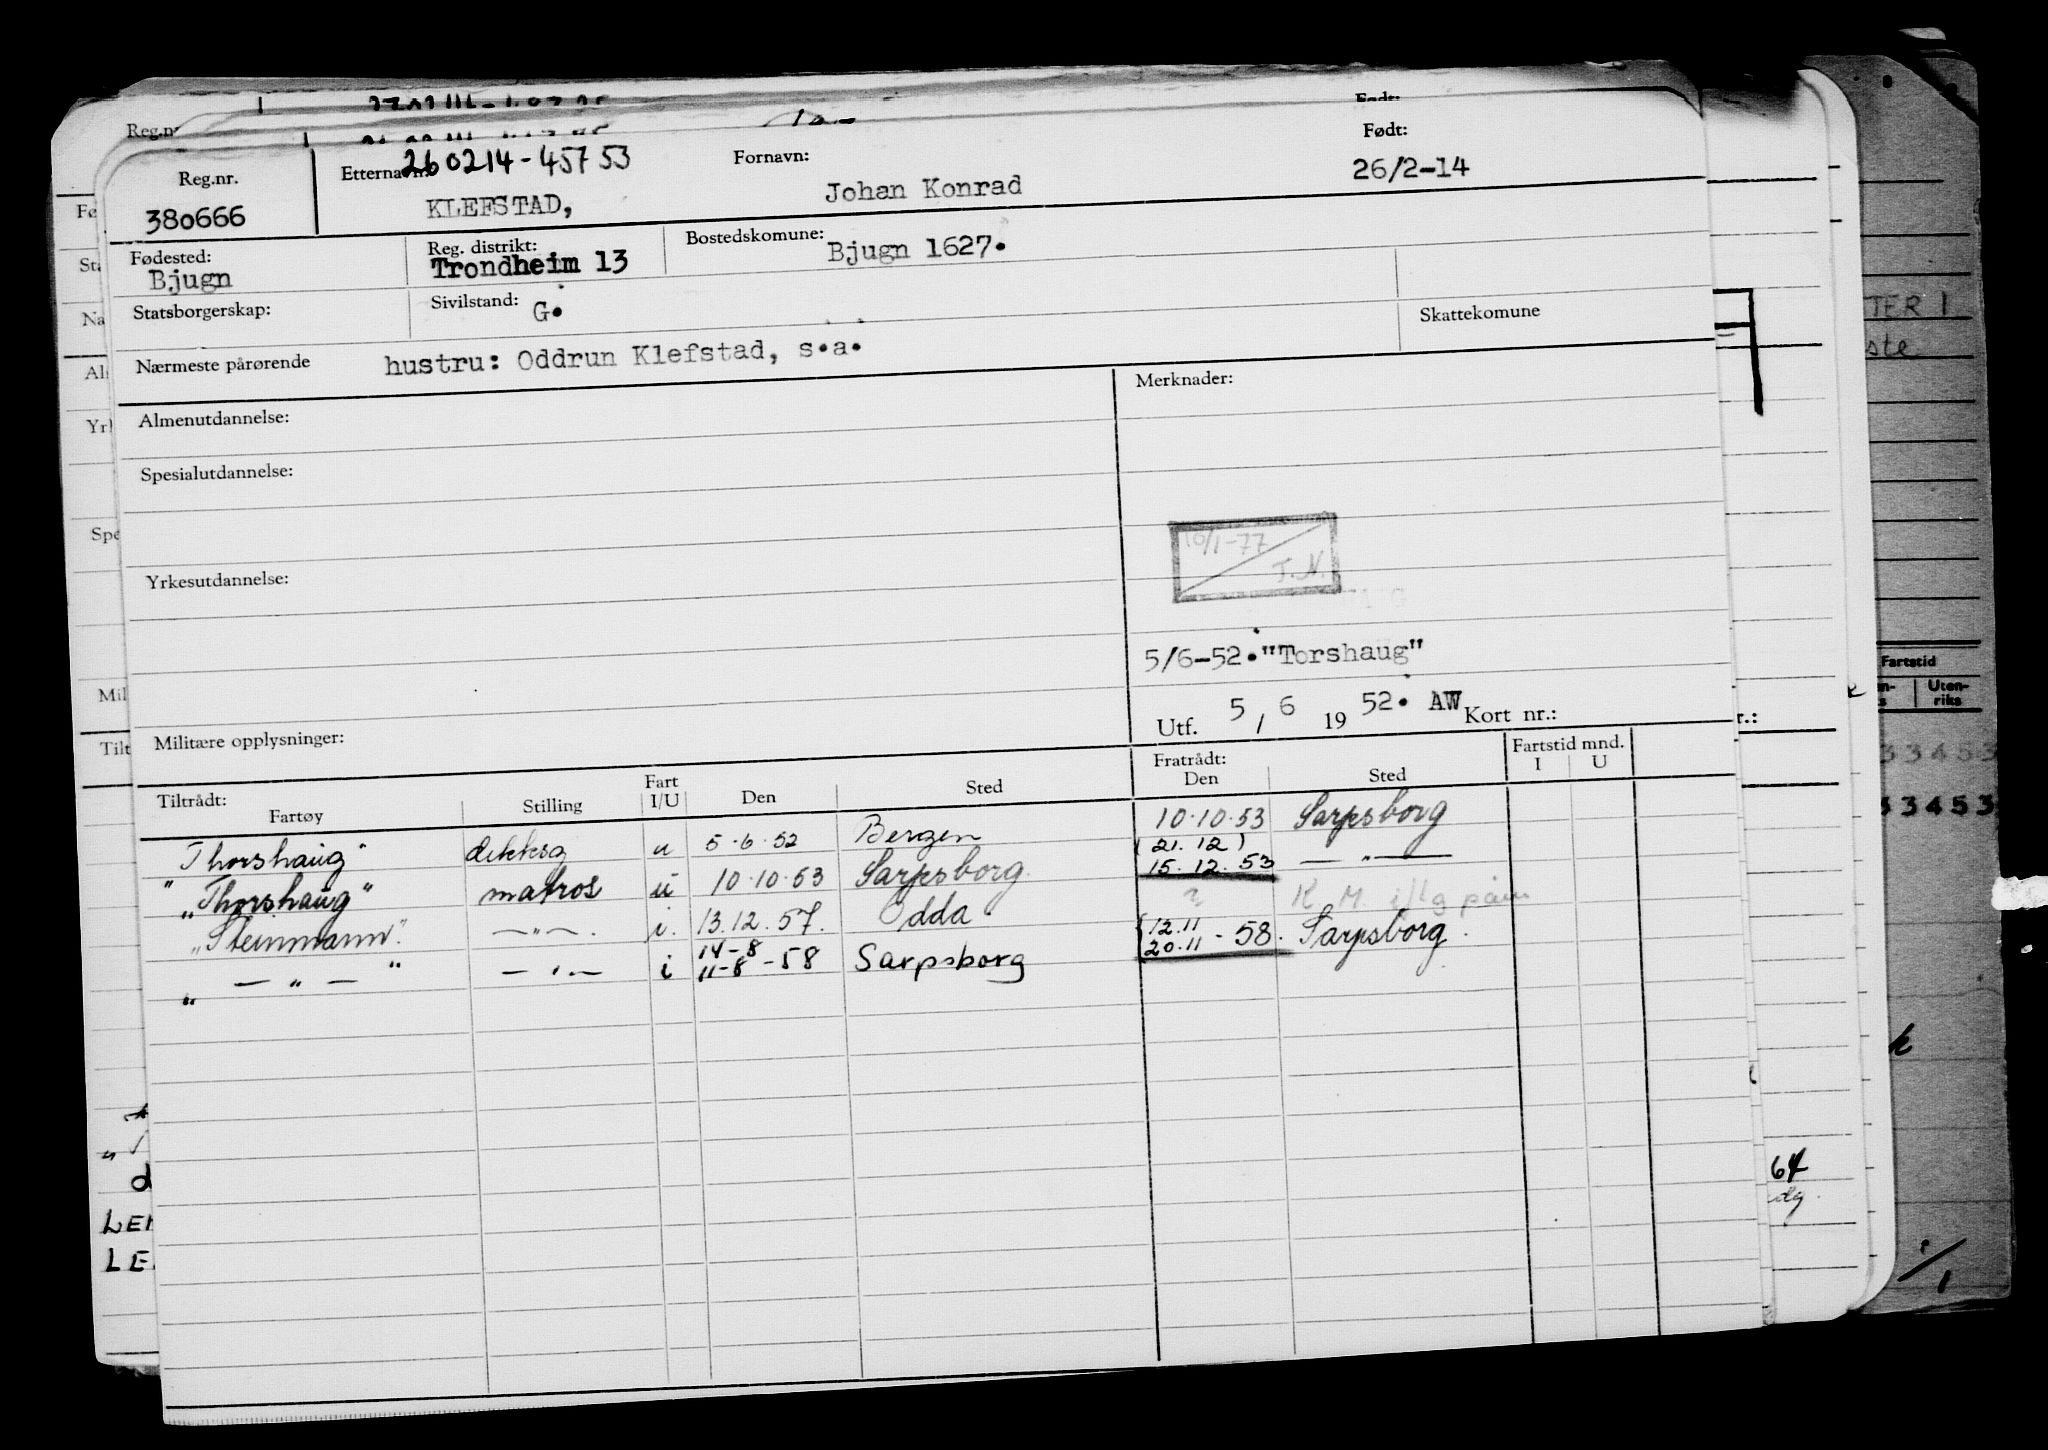 Reg.nr.
380666
Etterna
260214-45753
KLEFSTAD,
Fornavn:
Johan Konrad
Født:
26/2-14
Fødested:
Bjugn
Reg. distrikt:
Trondheim 13
Bostedskomune:
Bjugn 1627.
Statsborgerskap:
Sivilstand:
G.
Skattekomune
Nærmeste pårørende
hustru: Oddrun Klefstad, s.a.
Almenutdannelse:
Merknader:
Spesialutdannelse:
10/1-77
T.N.
Yrkesutdannelse:
5/6-52."Torshaug"
Utf. 5 / 6 19 52. AW Kort nr.:
Militære opplysninger:
Tiltrådt:
Fartøy Stilling Fart I/U Den Sted Fratrådt: Den Sted Fartstid mnd. I U
"Thorshaug" dekksg u 5.6.52 Bergen 10.10.53 Sarpsborg
"Thorshaug" matros u 10.10.53 Sarpsborg (21.12) 15.12.53 — " —
"Steinmann" — " — i. 13.12.57. Odda ? K.M.
" — " — " — " — i 14-8 11-8-58 Sarpsborg {12.11 20.11-58. Sarpsborg.
Reg.n
Født:
Fø
Sta
Na
Al
Yrl
Spe
Mil
Tilt
LE
TER 1
ste
Fartstid
Uten-
riks
33453
33453
r.:
64